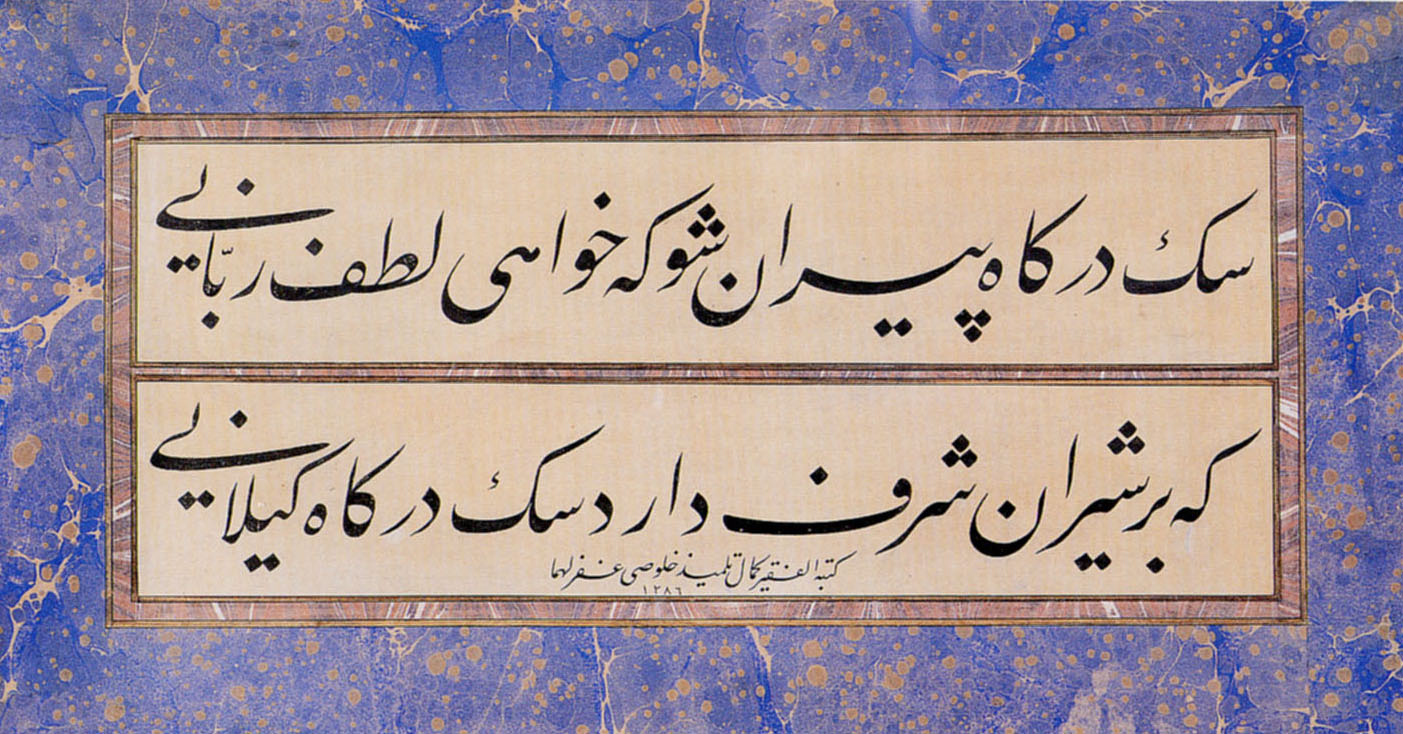 سك درکاه پیران شو که خواهی لطف ربّانی
که بر شیران شرف دارد سك درکاه کیلانی
کتبه الفقیر کمال تلمیذ خلوصی غفر لهما
١٢٨٦